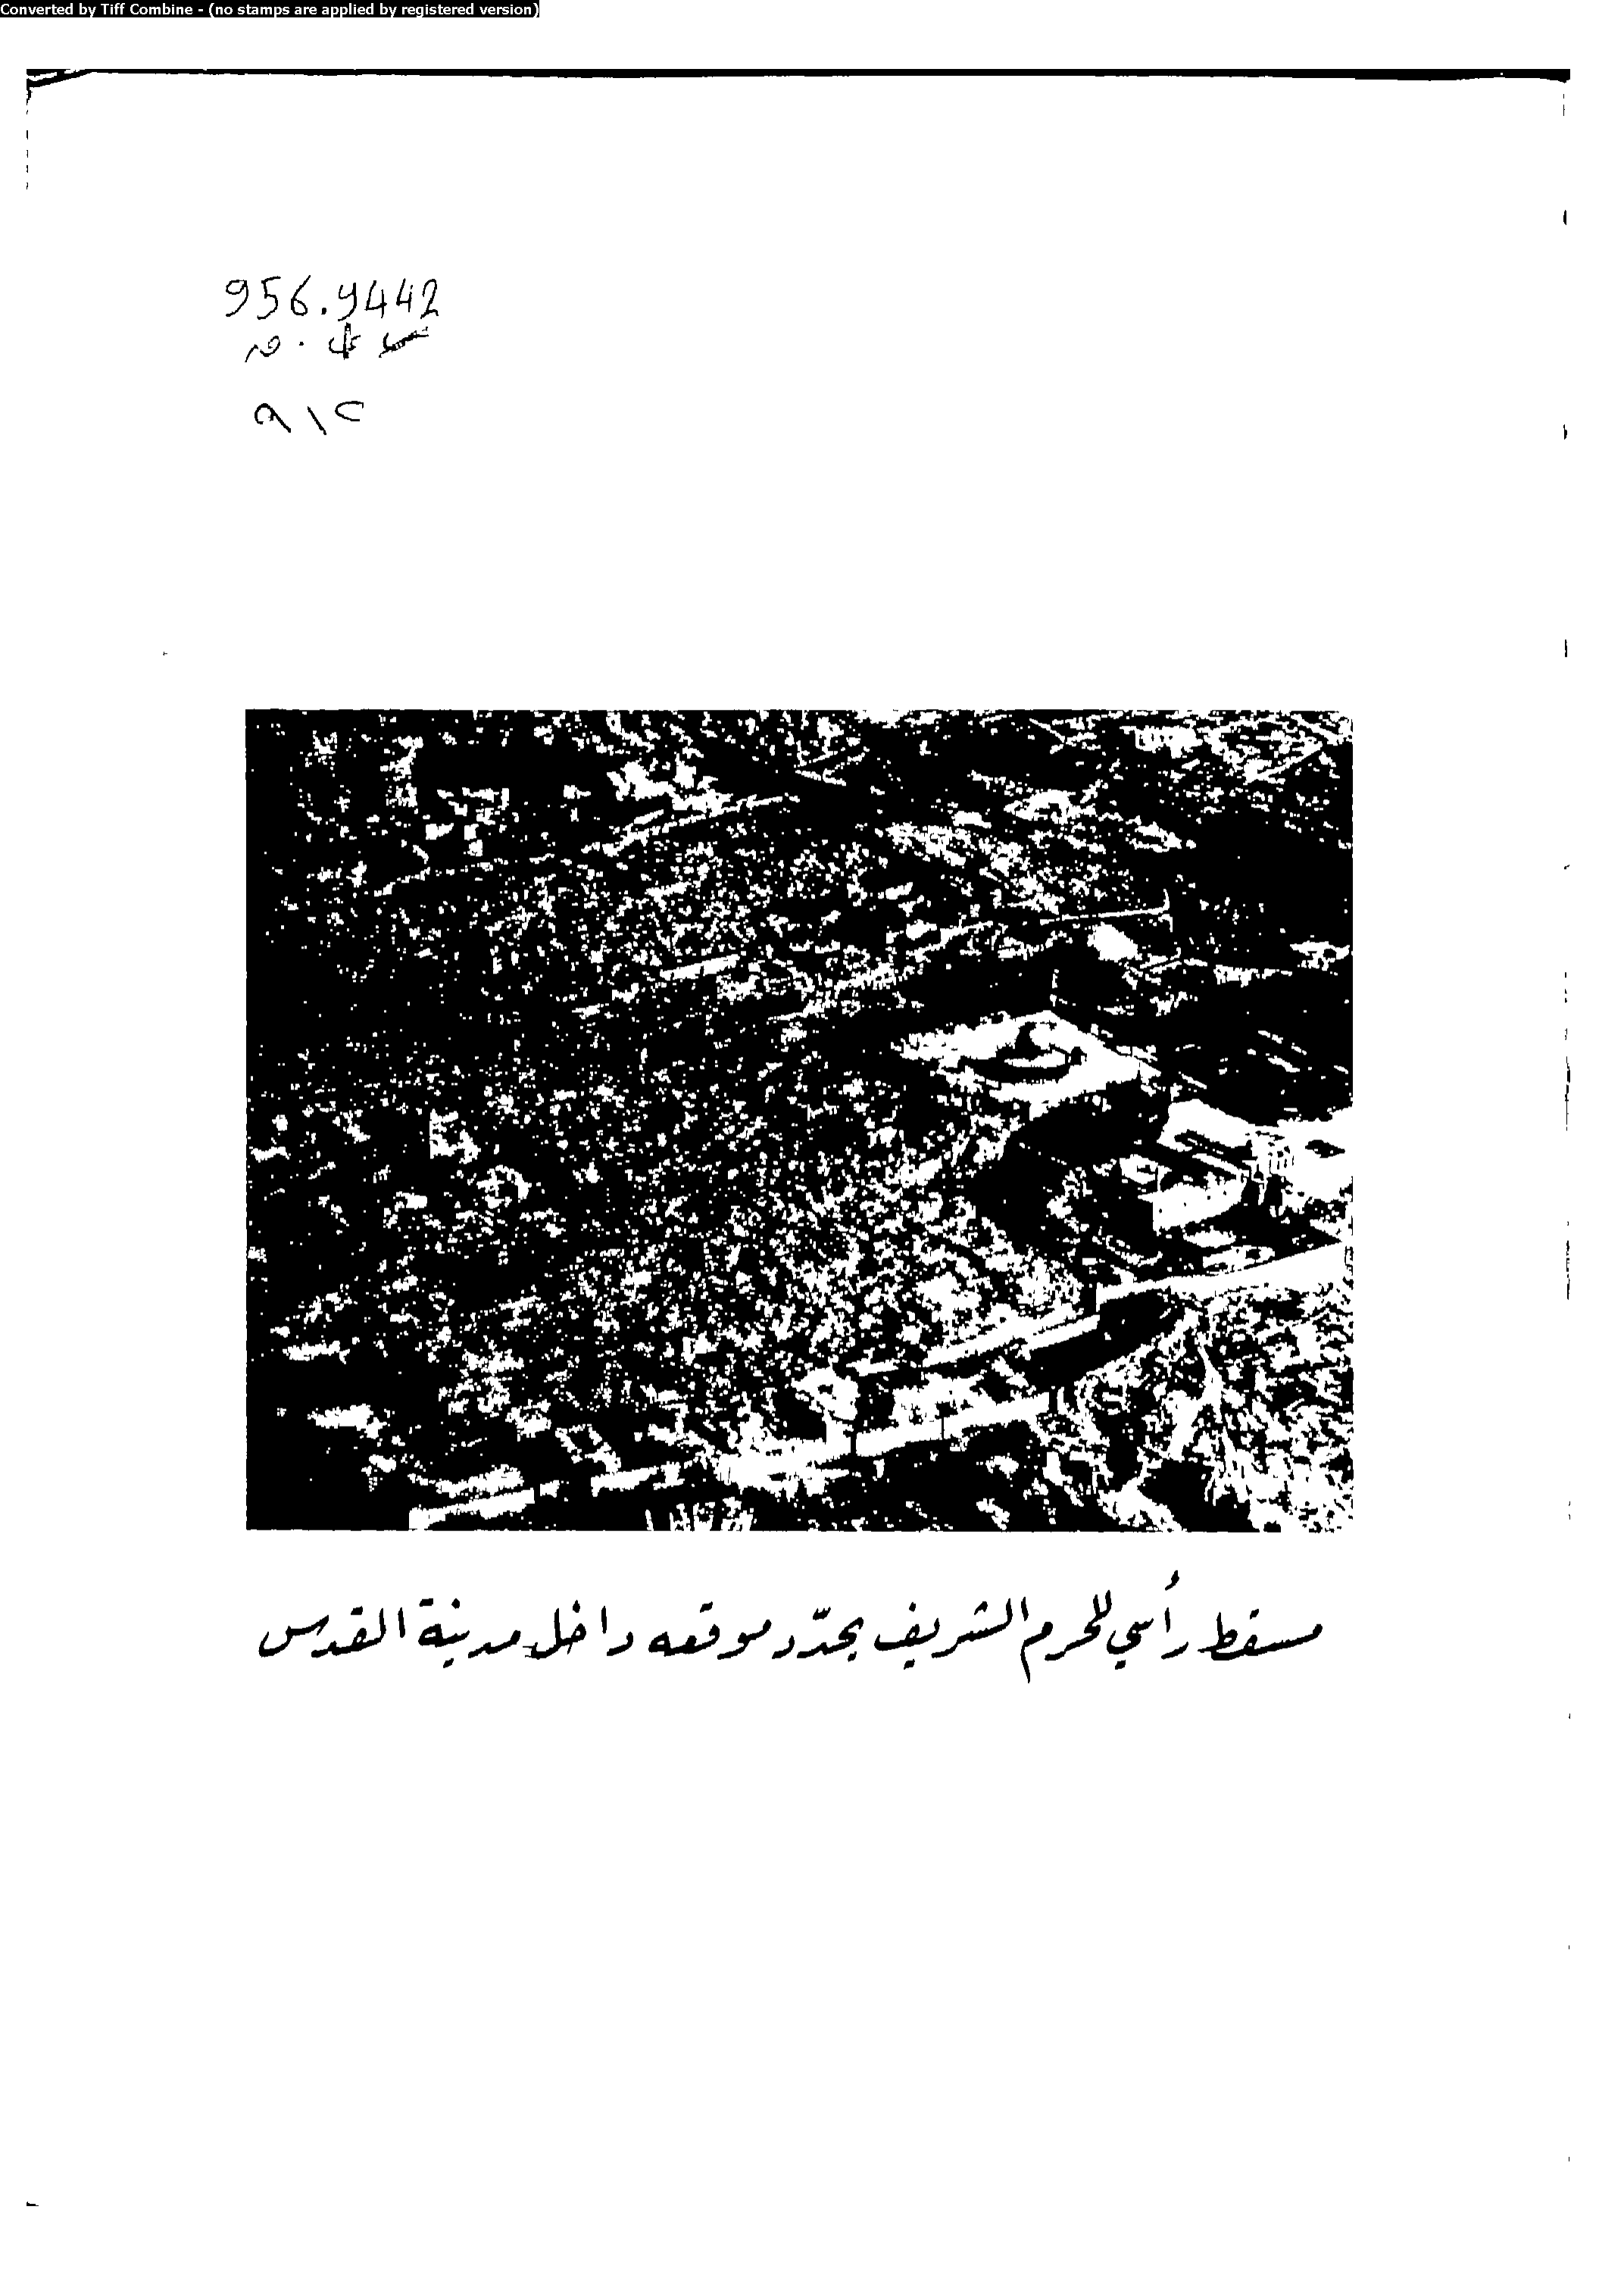 Converted by Tiff Combine - (no stamps are applied by registered version)
956.9442
مسقط رأسي للحرم الشريف يحدّد موقعه داخل مدينة القدس